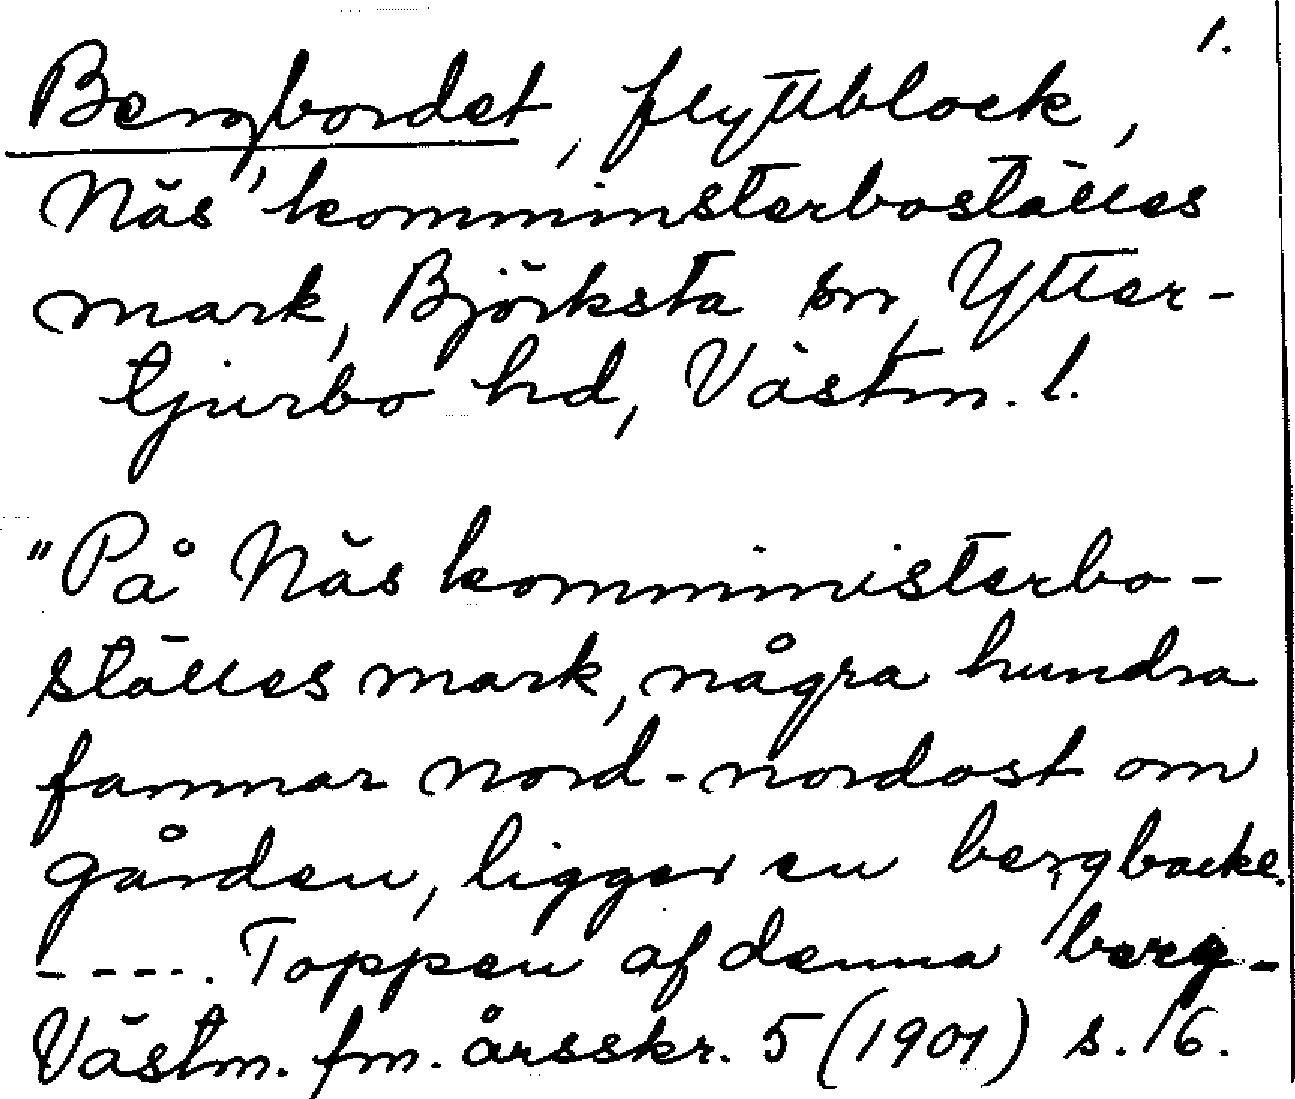 1.
Bergbordet, flyttblock,
Näs' komminsterboställes
mark, Björksta sn, Ytter-
tjurbo hd, Västm. l.
"På Näs komministerbo-
ställes mark, några hundra
famnar nord-nordost om
gården, ligger en bergbacke.
----. Toppen af denna berg-
Västm. fm. årsskr. 5 (1901) s. 16.